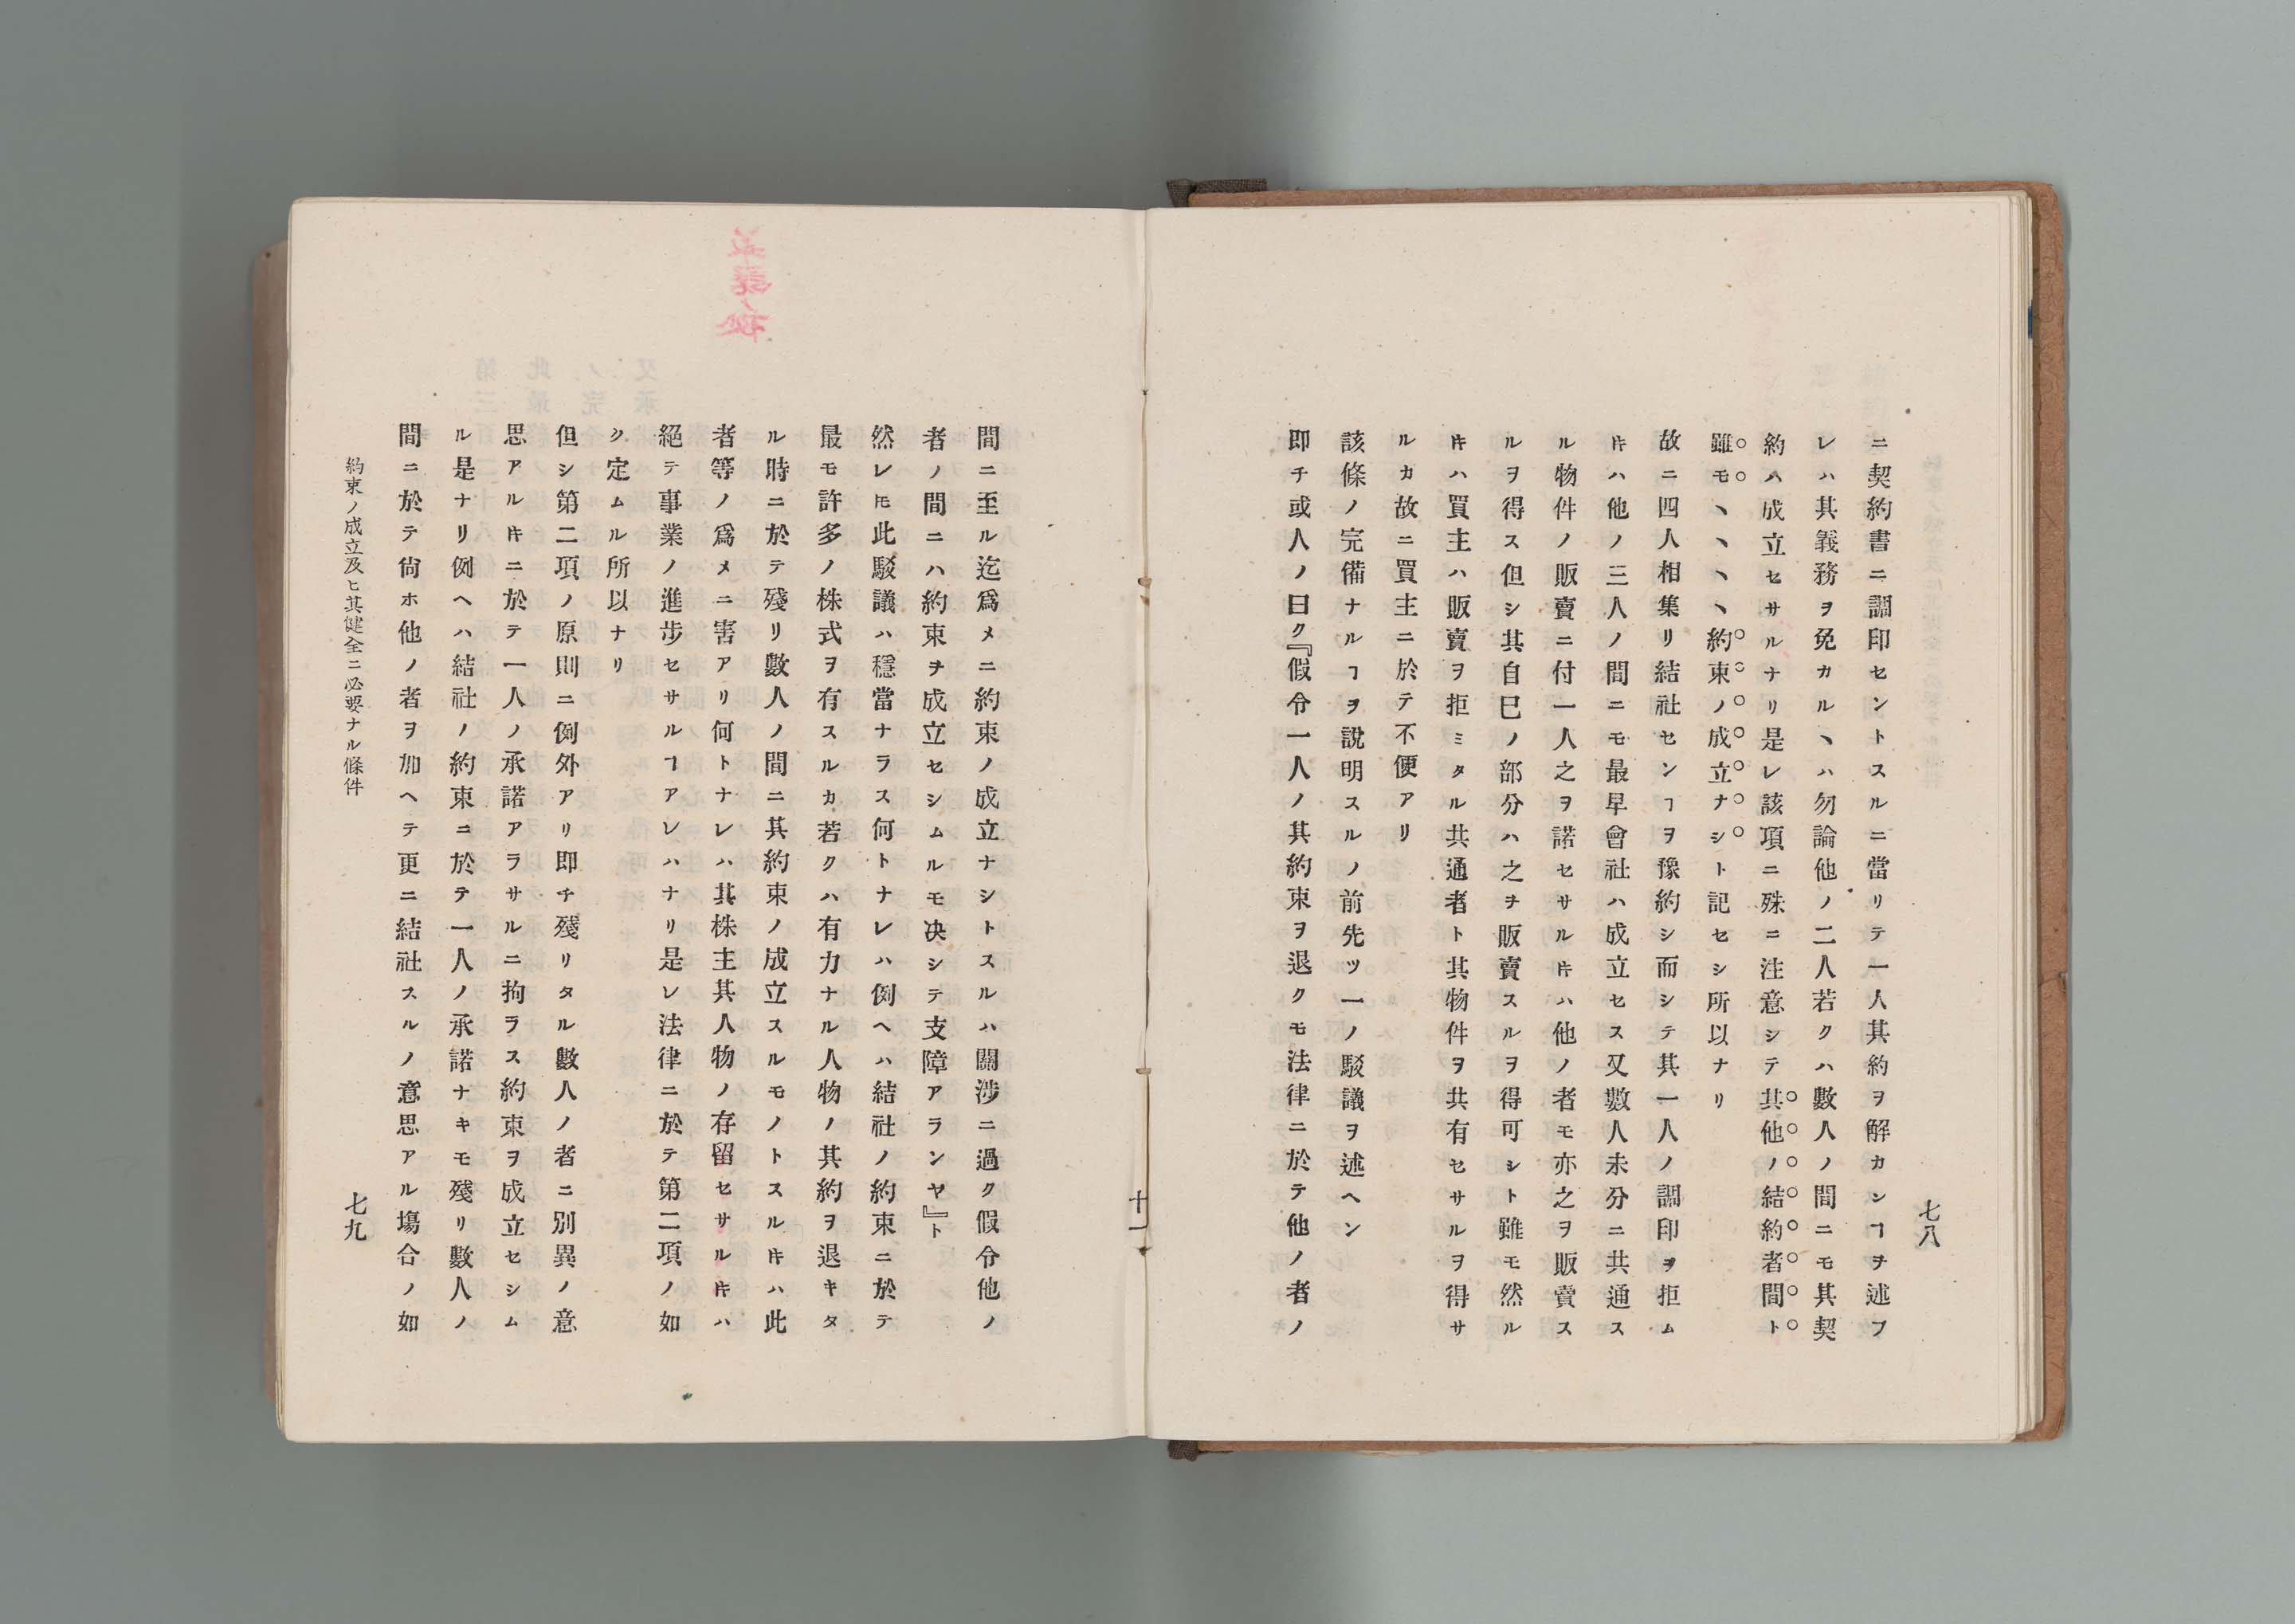 七八
ニ契約書ニ調印セントスルニ當リテ一人其約ヲ解カンヿヲ述フ
レハ其義務ヲ免カルヽハ勿論他ノ二人若クハ數人ノ間ニモ其契
約ハ成立セサルナリ是レ該項ニ殊ニ注意シテ其他ノ結約者間ト
雖モヽヽヽヽ約束ノ成立ナシト記セシ所以ナリ
故ニ四人相集リ結社センヿヲ豫約シ而シテ其一人ノ調印ヲ拒ム
𪜈ハ他ノ三人ノ間ニモ最早會社ハ成立セス又數人未分ニ共通ス
ル物件ノ販賣ニ付一人之ヲ諾セサル𪜈ハ他ノ者モ亦之ヲ販賣ス
ルヲ得ス但シ其自巳ノ部分ハ之ヲ販賣スルヲ得可シト雖モ然ル
𪜈ハ買主ハ販賣ヲ拒ミタル共通者ト其物件ヲ共有セサルヲ得サ
ルカ故ニ買主ニ於テ不便アリ
該條ノ完備ナルヿヲ說明スルノ前先ツ一ノ駁議ヲ述ヘン
即チ或人ノ曰ク『假令一人ノ其約束ヲ退クモ法律ニ於テ他ノ者ノ
十一
間ニ至ル迄爲メニ約束ノ成立ナシトスルハ關涉ニ過ク假令他ノ
者ノ間ニハ約束ヲ成立セシムルモ决シテ支障アランヤ』ト
然レ𪜈此駁議ハ穩當ナラス何トナレハ例ヘハ結社ノ約束ニ於テ
最モ許多ノ株式ヲ有スルカ若クハ有力ナル人物ノ其約ヲ退キタ
ル時ニ於テ殘リ數人ノ間ニ其約束ノ成立スルモノトスル𪜈ハ此
者等ノ爲メニ害アリ何トナレハ其株主其人物ノ存留セサル𪜈ハ
絕テ事業ノ進步セサルヿアレハナリ是レ法律ニ於テ第二項ノ如
ク定ムル所以ナリ
但シ第二項ノ原則ニ例外アリ即チ殘リタル數人ノ者ニ別異ノ意
思アル𪜈ニ於テ一人ノ承諾アラサルニ拘ラス約束ヲ成立セシム
ル是ナリ例ヘハ結社ノ約束ニ於テ一人ノ承諾ナキモ殘リ數人ノ
間ニ於テ尙ホ他ノ者ヲ加ヘテ更ニ結社スルノ意思アル塲合ノ如
約束ノ成立及ヒ其健全ニ必要ナル條件
七九